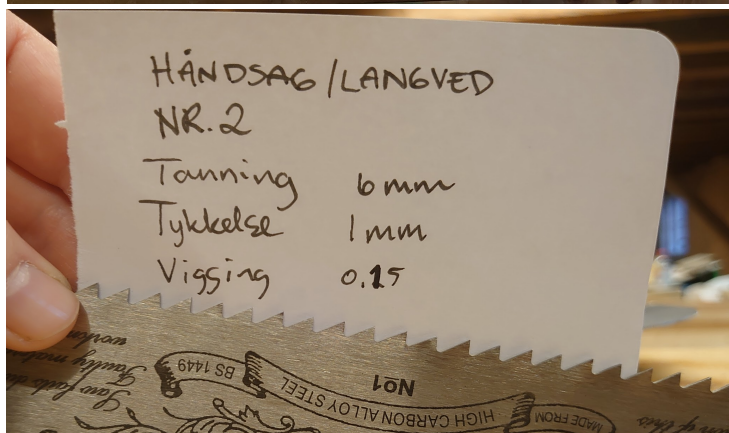 HÅNDSAG/LANGVED
NR.2
Tanning 6 mm
Tykkelse 1 mm
Viggsing 0.15
BS 1449
HIGH CARBON ALLOY STEEL
MADE FROM
No1